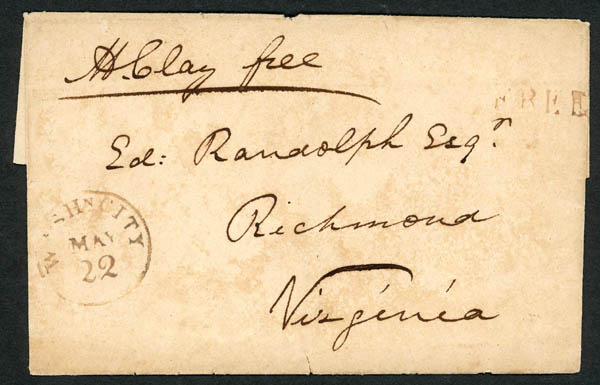 H. Clay free
FREE
Ed: Randolph Esqr.
Richmond
Virginia
WASHN CITY
MAY
22